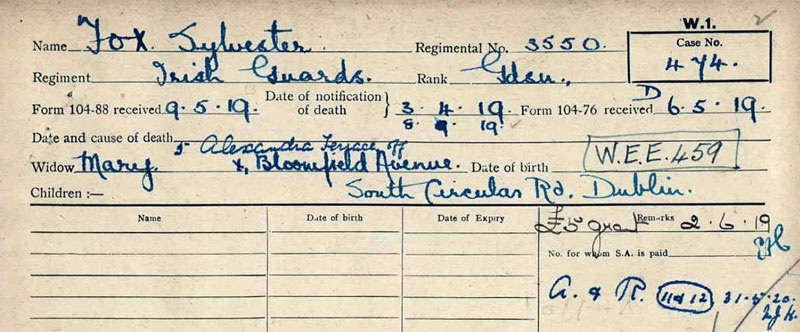 W.1.
Name Fox Sylvester Regimental No. 3550. Case No. 474.
Regiment Irish Guards. Rank Gdsn.
Form 104-88 received 9.5.19. Date of notification of death } 3.4.19. Form 104-76 received D 6.5.19.
8.9.19.
Date and cause of death 5 Alexandra Terrace, off
Widow Mary. x, Bloomfield Avenue. Date of birth W.E.E. 459
Children :— South Circular Rd. Dublin.
Name Date of birth Date of Expiry Remarks
£5 grant 2.6.19
No. for whom S.A. is paid
A. & R. 11 & 12 31.5.20.